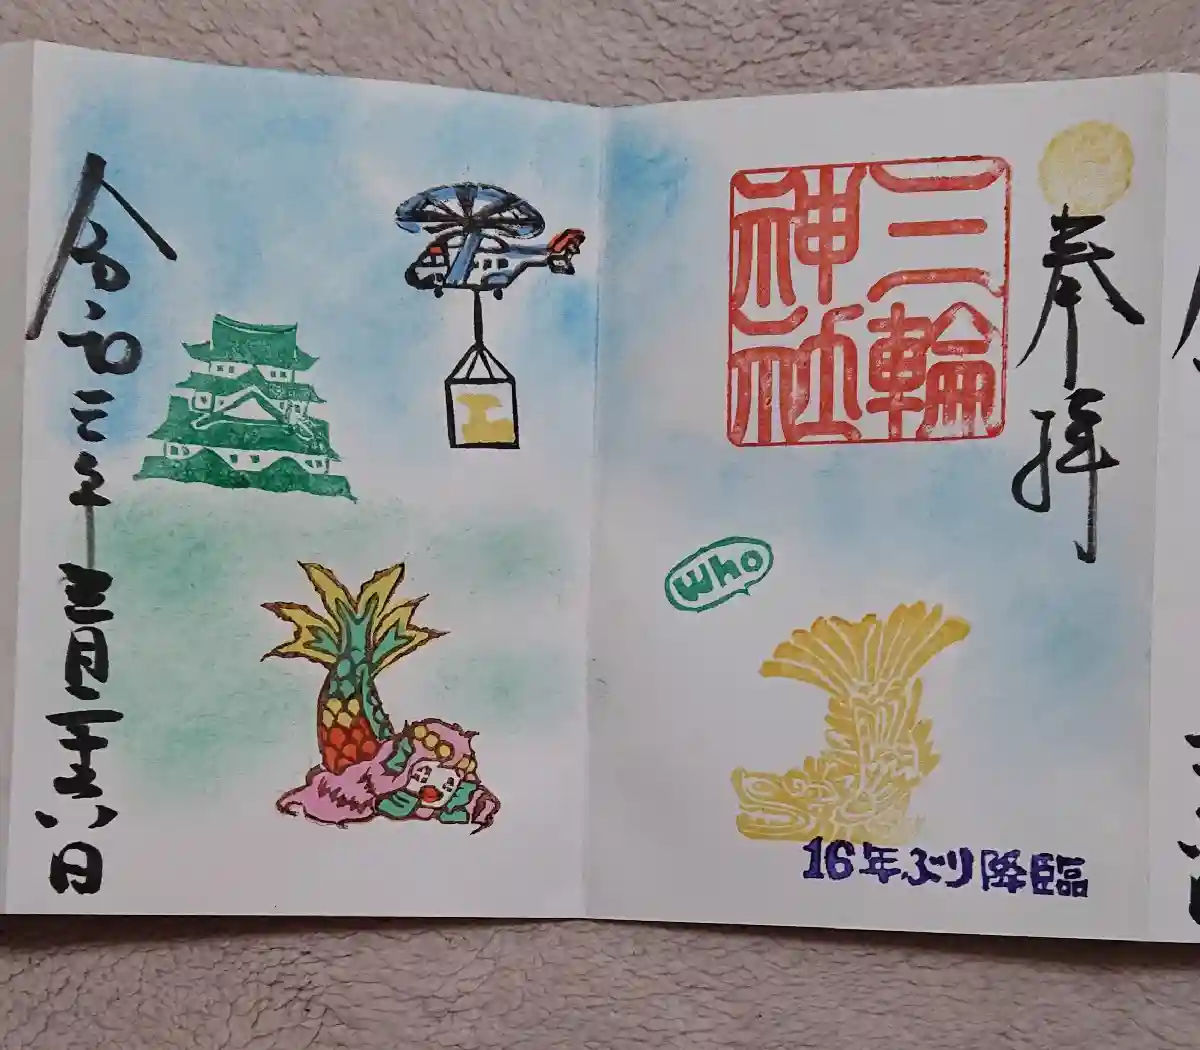 奉拝
三輪神社
who
16年ぶり降臨
令和三年四月二十六日